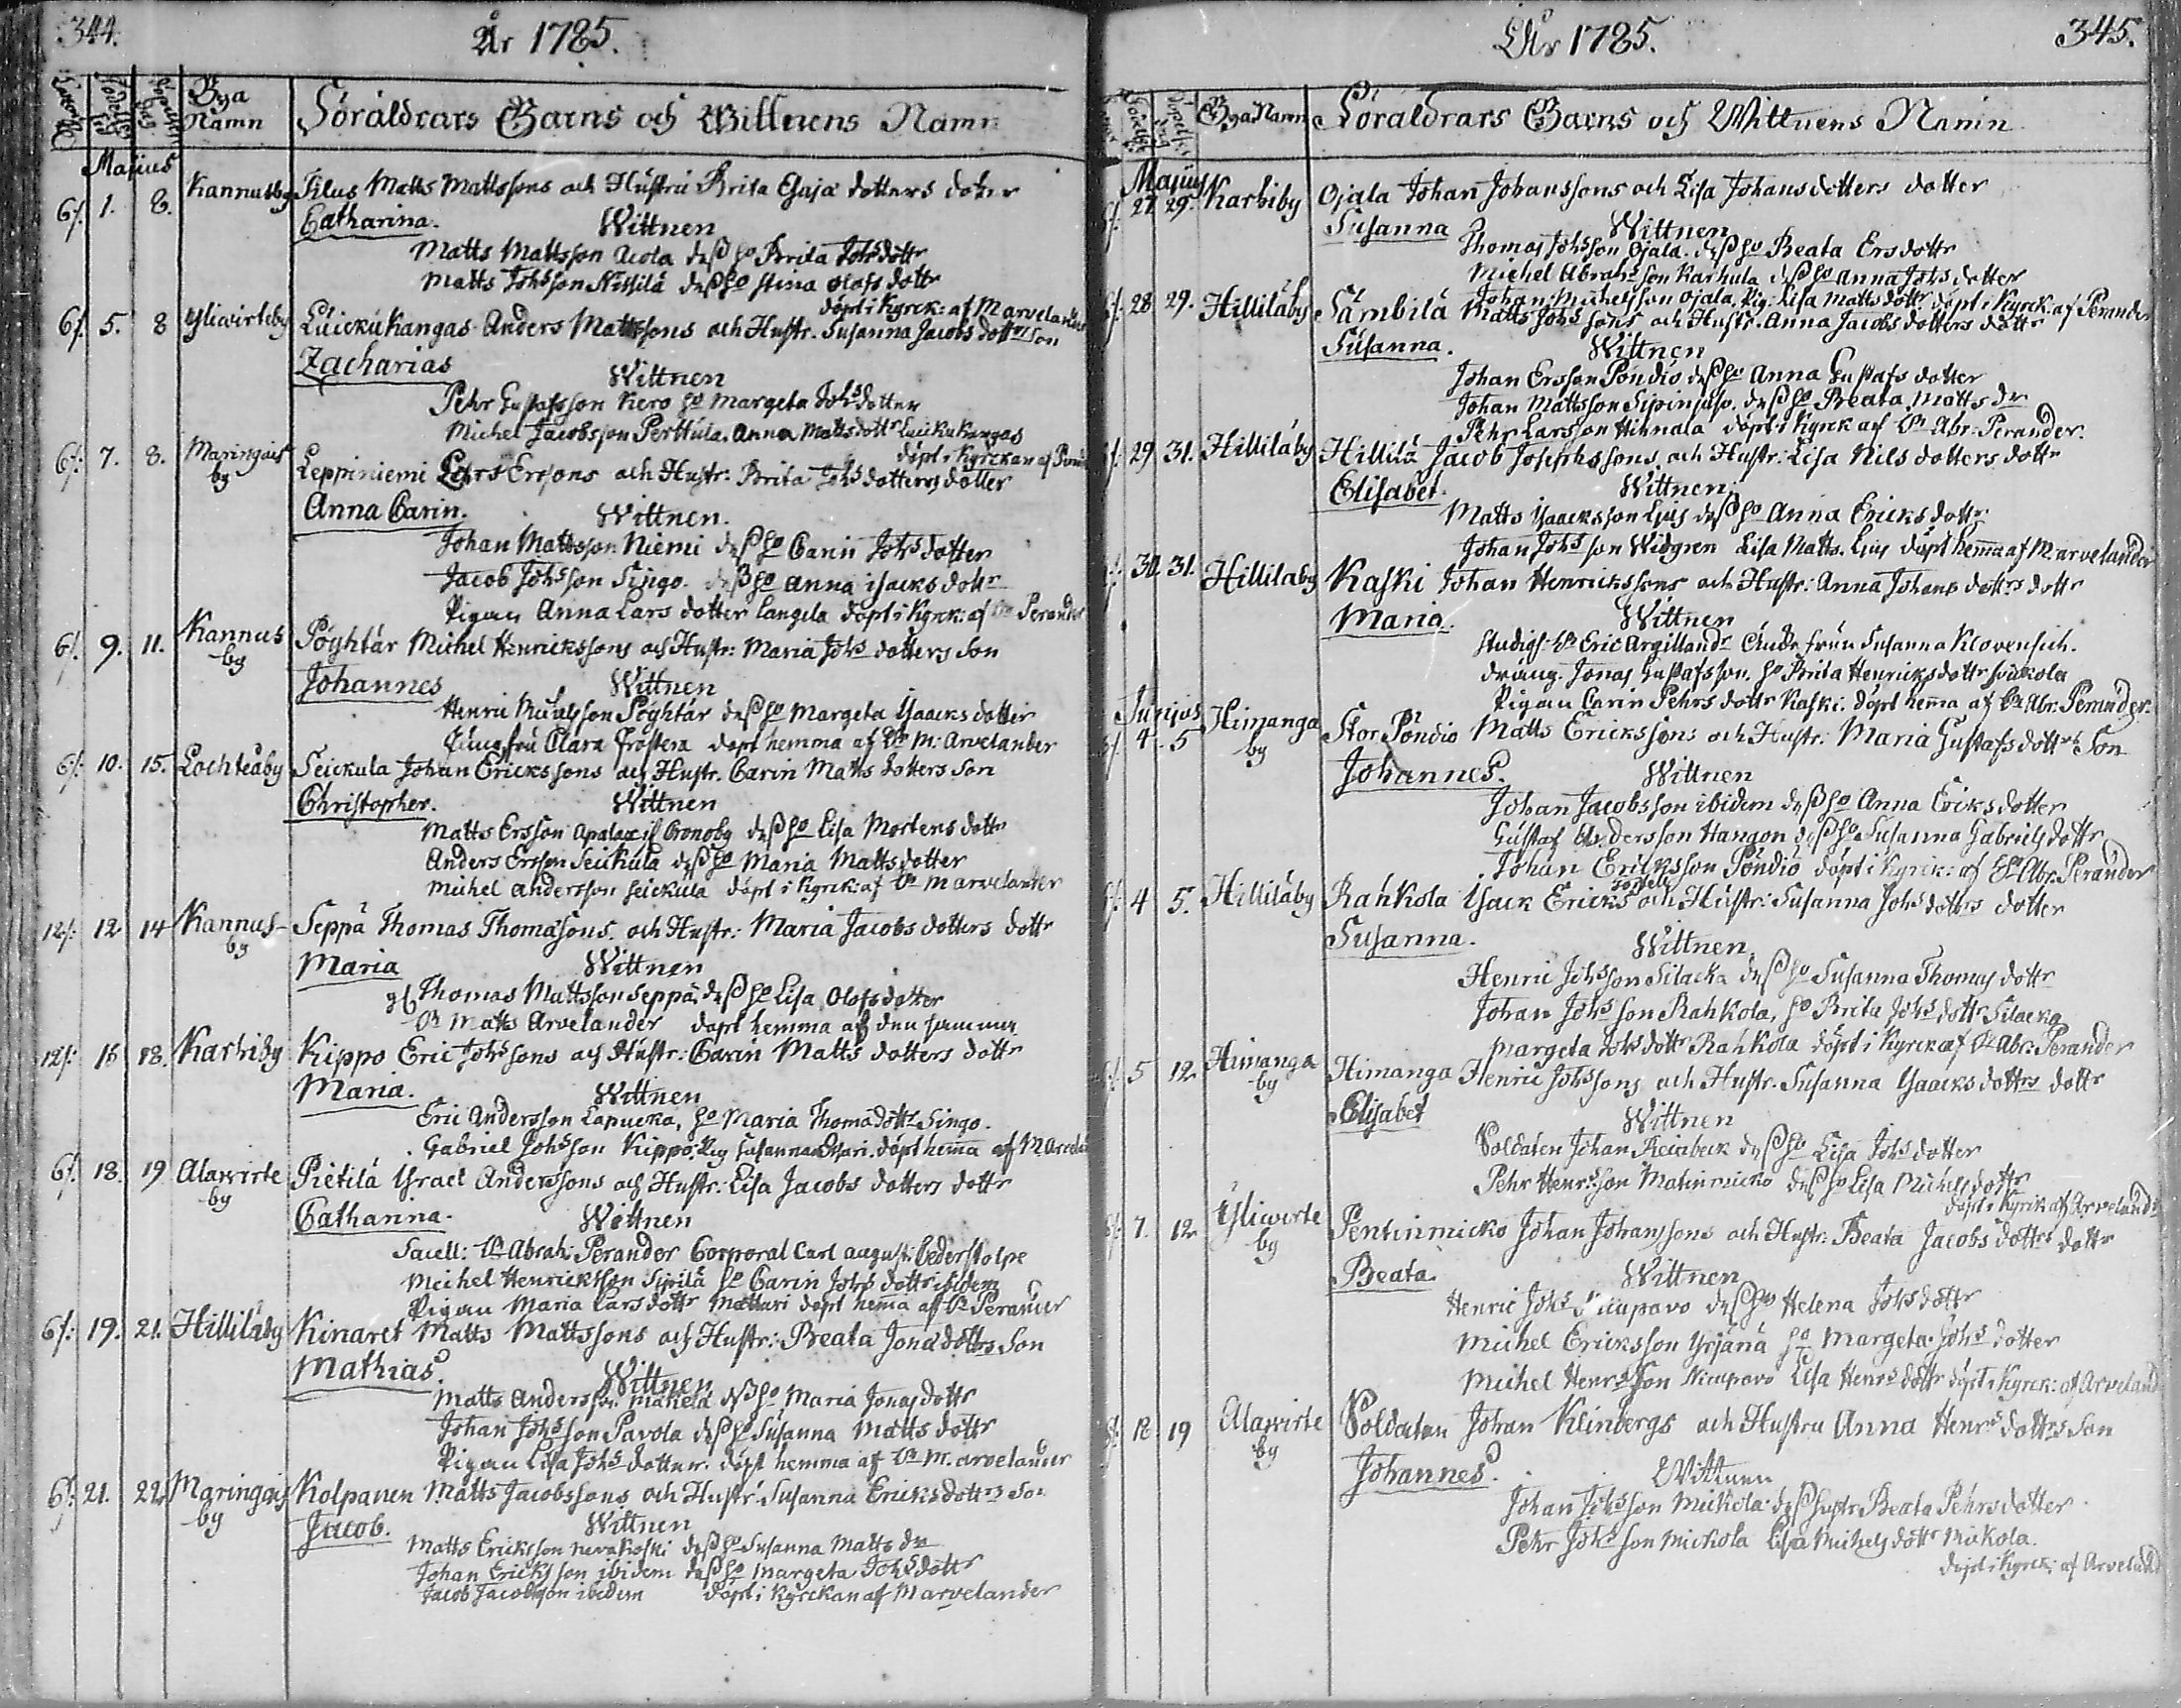 344.
År 1785.
Bya Namn
Föräldrars Barns och Wittnens Namn
Majus
6/. 1. 8. Kannusby Filus Matts Mattssons och Hustru Brita Esaiæ dotters doter
Catharina. Wittnen
Matts Mattsson Aiola dess ho Brita Johsdottr
Matts Johsson Nissilä dess ho Stina Olofs dottr
döpt i Kyrck: af M Arvelander
6/. 5. 8 Yliwirteby Luickukangas Anders Mattssons och Hustr. Susanna Jacobs dottrs son
Zacharias Wittnen
Pehr Gustafsson Kero ho Margeta Johsdotter
Michel Jacobsson Perttula. Anna Mattsdottr Luickukangas
döpt i Kyrckan af
6/: 7. 8. Maringais by Leppiniemi Lars Erssons och Hustr: Brita Johs dotters dotter
Anna Carin. Wittnen.
Johan Mattsson Niemi dess ho Carin Johs dotter
Jacob Johsson Singo. dess ho Anna Isacks dottr
Pigan Anna Lars dotter Langela döpt i Kyrck: af Hr Perander
6/. 9. 11. Kannus by Pöyhtär Michel Henrickssons och Hustr: Maria Johs dotters Son
Johannes Wittnen
Henric Michelsson Pöyhtär dess ho Margeta Isaacks dotter
Jungfru Clara Frostera döpt hemma af Hr M: Arvelander
6/: 10. 15. Lochteåby Seickula Johan Erickssons och Hustr. Carin Matts dotters Son
Christopher. Wittnen
Matts Ersson Cronoby dess ho Lisa Mortens dottr
Anders Ersson Seickula dess ho Maria Mattsdotter
Michel Andersson Seickula döpt i Kyrck: af Hr M Arvelander
12/: 12. 14 Kannus-by Seppä Thomas Thomæsons. och Hustr: Maria Jacobs dotters dottr
Maria Wittnen
Thomas Mattsson Seppä dess ho Lisa Olofsdotter
Hr Matts Arvelander döpt hemma af den samma
12/: 16 18. Karhiby Kippo Eric Johssons och Hustr: Carin Matts dotters dottr
Maria. Wittnen
Eric Andersson Lapucka, ho Maria Thomædottr Singo.
Gabriel Johsson Kippo: Pig Susanna döpt hemma af M. Arvelan
6/. 18. 19 Alawirte by Pietilä Israel Anderssons och Hustr: Lisa Jacobs dotters dottr
Catharina. Wittnen
Sacell: Hr Abrah: Perander Corporal Carl August: Cederstolpe
Michel Henricksson Sipilä ho Carin Johs dottr ibidem
Pigan Maria Larsdottr Mattari döpt hema af Hr Perander
6/: 19. 21. Hilliläby Kinaret Matts Mattssons och Hustr: Beata Jonædottrs Son
Mathias. Wittnen
Matts Andersson Mäkelä dess ho Maria Jonasdottr
Johan Johsson Pavola dess ho Susanna Matts dottr
Pigan Lisa Johs dotter. döpt hemma af Hr M. Arvelander
6/: 21. 22. Maringais by Kolpanen Matts Jacobssons och Hustr: Susanna Ericksdottrs Son
Jacob. Wittnen
Matts Ericksson Nevakoski dess ho Susanna Matts dr
Johan Ericksson ibidem dess ho Margeta Johsdottr
Jacob Jacobsson ibidem döpt i Kyrckan af M Arvelander
345.
År 1785.
Bya Namn Föräldrars Barns och Wittnens Namn
Majus
27 29. Karhiby Ojala Johan Johanssons och Lisa Johansdotters dotter
Susanna Wittnen
Thomas Johsson Ojala. dess ho Beata Ersdottr
Michel Abrahsson Karhula dess ho Anna Johs dotter
Johan Michelsson Ojala. Pig: Lisa Matts dottr döpt i Kyrck: af Perander
28 29. Hilliläby Särnbilä Matts Johssons och Hustr. Anna Jacobs dotters dottr
Susanna. Wittnen
Johan Ersson Pöndiö dess ho Anna Gustafs dotter
Johan Mattsson dess ho Beata Matts dr
Pehr Larsson Hihnala döpt i Kyrck af Hr Abr: Perander.
29. 31. Hilliläby Hillilä Jacob Josephssons och Hustr: Lisa Nils dotters dottr
Elisabet. Wittnen
Matts Isaacksson dess ho Anna Ericks dottr
Johan Johsson Widgren Lisa Matts. döpt hemma af M Arvelander
30. 31. Hilliläby Kaski Johan Henrickssons och Hustr: Anna Johans dottrs dottr
Maria. Wittnen
Studios: Hr Eric Argillandr Susanna
dräng. Jonas Gustafsson. ho Brita Henricksdottr
Pigan Carin Pehrs dottr Kaski. döpt hemma af Hr Abr: Perander.
Junius
4. 5 Himanga by Stor Pöndiö Matts Erickssons och Hustr: Maria Gustafsdottrs Son
Johannes. Wittnen
Johan Jacobsson ibidem dess ho Anna Ericksdotter
Gustaf Andersson Hangon dess ho Susanna Gabrielsdottr
Johan Ericksson Pöndiö döpt i Kyrck: af Hr Abr: Perander
4 5. Hilliläby Rahkola Isack Ericks och Hustr: Susanna Johs dottrs dotter
Susanna. Wittnen
Henric Johsson Silacka dess ho Susanna Thomas dottr
Johan Johsson Rahkola, ho Brita Johs dottr Silacka
Margeta Johs dottr Rahkola döpt i Kyrck af Hr Abr: Perander
5 12 Himanga by Himanga Henric Johssons och Hustr. Susanna Isaacks dottrs dottr
Elisabet Wittnen
Soldaten Johan Reinbeck dess ho Lisa Johs dotter
Pehr Henrsson Matinmicko dess ho Lisa Michelsdottr
döpt i Kyrck af Arveland
7. 12 Yliwirte by Pentinmicko Johan Johanssons och Hustr: Beata Jacobs dottrs dottr
Beata. Wittnen
Henric Johs Niupavo dess ho Helena Johs dottr
Michel Ericksson Yrjänä ho Margeta Johs dotter
Michel Henrsson Niupavo Lisa Henrs dottr döpt i Kyrck: af Arveland
12 19 Alawirte by Soldaten Johan Klinbergs och Hustru Anna Henrs dottrs Son
Johannes. Wittnen
Johan Johsson Mickola dess hustr Beata Pehrsdotter
Pehr Johsson Mickola Lisa Michels dottr Mickola.
döpt i Kyrck: af Arveland